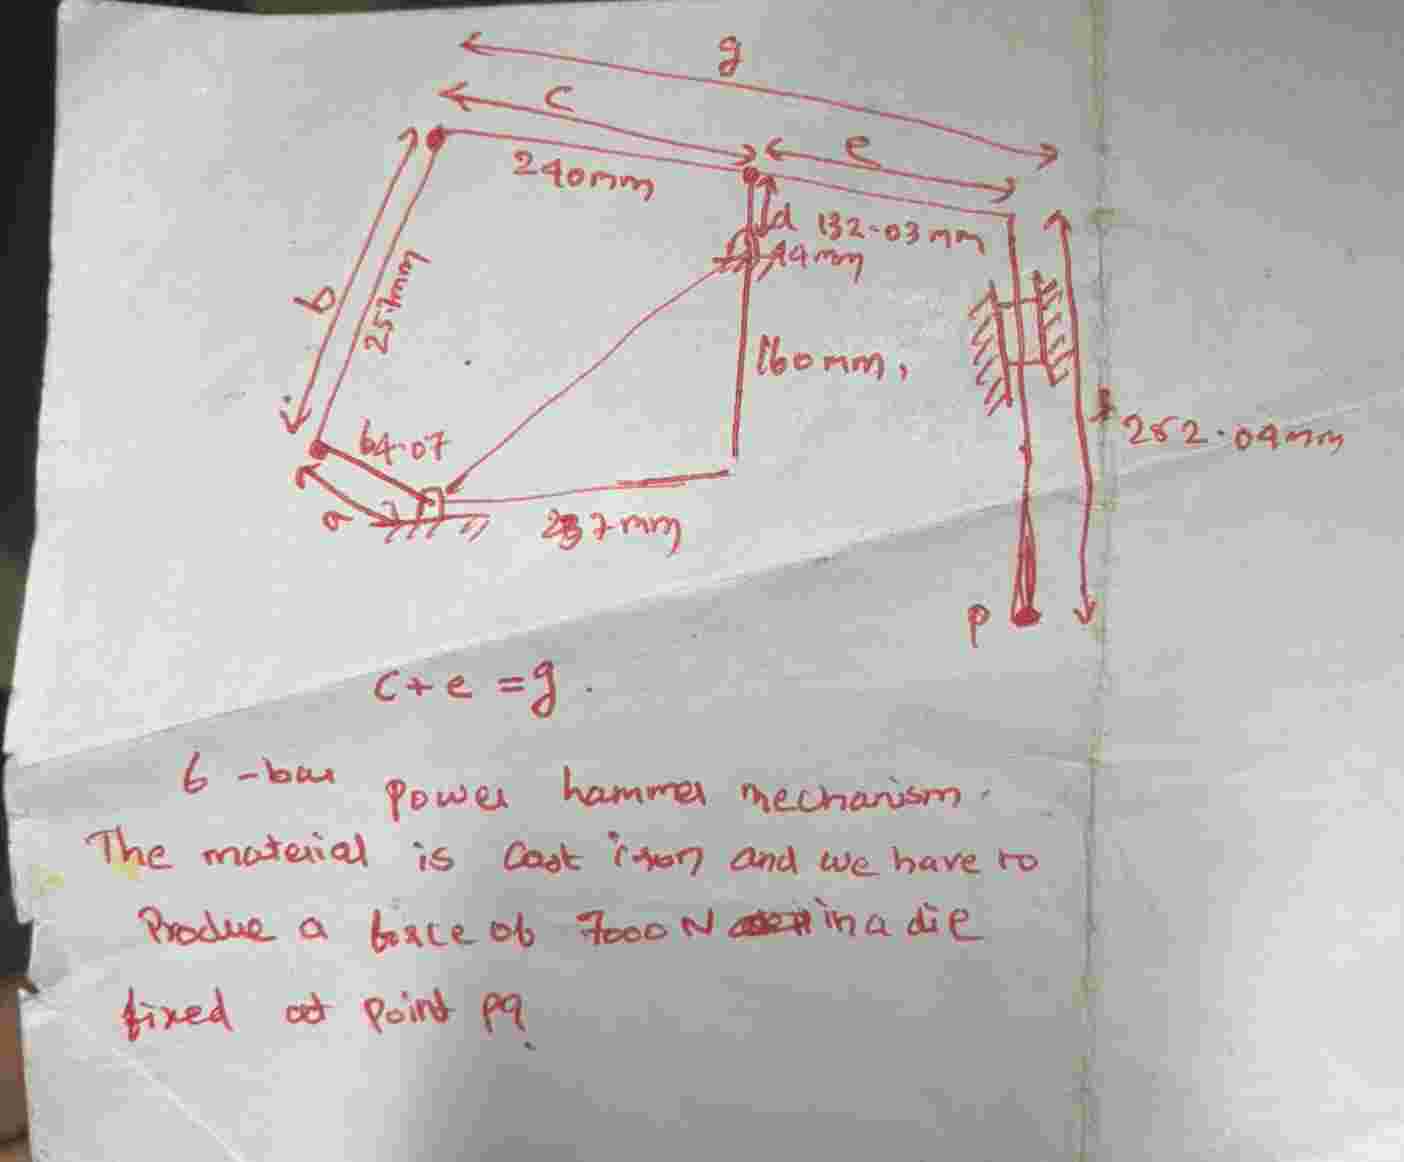 g
c
e
240mm
d 132.03mm
44mm
b
257mm
160mm,
64.07
a
237mm
252.04mm
P
c+e=g.
6-bar power hammer mechanism.
The material is cast iron and we have to
Produe a force of 7000N in a die
fixed at point pq.